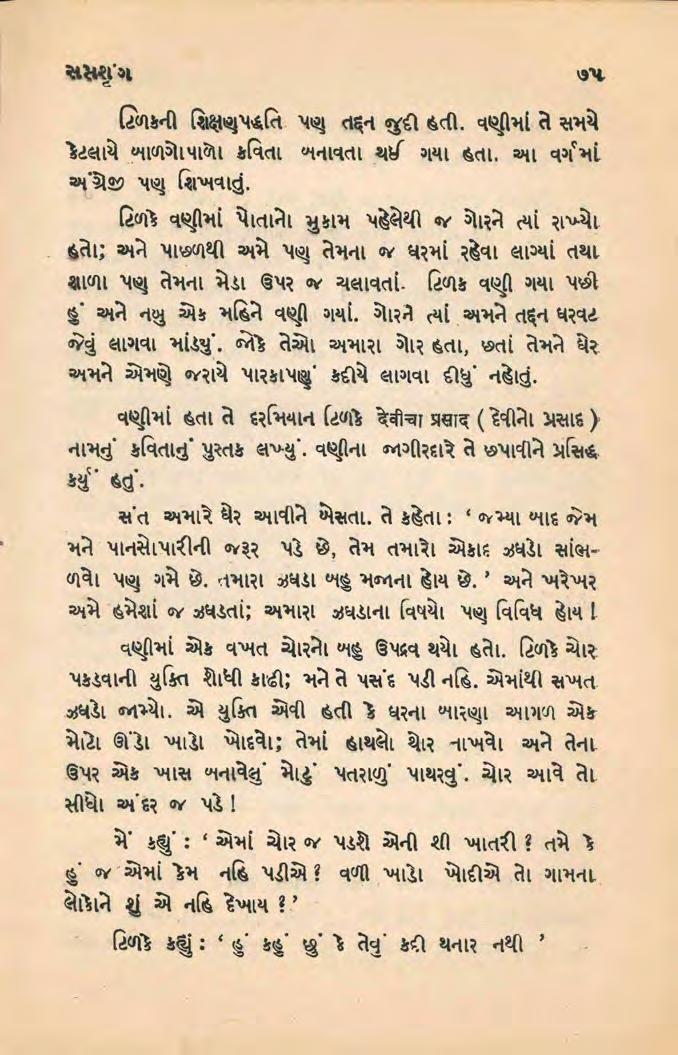 સસશૃંગ ૭૫
ટિળકની શિક્ષણપદ્ધતિ પણ તદ્દન જુદી હતી. વણીમાં તે સમયે
કેટલાયે બાળગોપાળો કવિતા બનાવતા થઈ ગયા હતા. આ વર્ગમાં
અંગ્રેજી પણ શિખવાતું.
ટિળકે વણીમાં પોતાનો મુકામ પહેલેથી જ ગોરને ત્યાં રાખ્યો
હતો; અને પાછળથી અમે પણ તેમના જ ઘરમાં રહેવા લાગ્યાં તથા
શાળા પણ તેમના મેડા ઉપર જ ચલાવતાં. ટિળક વણી ગયા પછી
હું અને નબુ એક મહિને વણી ગયાં. ગોરને ત્યાં અમને તદ્દન ઘરવટ
જેવું લાગવા માંડયું. જોકે તેઓ અમારા ગોર હતા, છતાં તેમને ઘેર
અમને એમણે જરાયે પારકાપણું કદીયે લાગવા દીધું નહોતું.
વણીમાં હતા તે દરમિયાન ટિળકે देवीचा प्रसाद ( દેવીનો પ્રસાદ )
નામનું કવિતાનું પુસ્તક લખ્યું. વણીના જાગીરદારે તે છપાવીને પ્રસિદ્ધ
કર્યું હતું.
સંત અમારે ઘેર આવીને બેસતા. તે કહેતા : ‘ જમ્યા બાદ જેમ
મને પાનસોપારીની જરૂર પડે છે, તેમ તમારો એકાદ ઝઘડો સાંભ-
ળવો પણ ગમે છે. તમારા ઝઘડા બહુ મજાના હોય છે. ’ અને ખરેખર
અમે હમેશાં જ ઝઘડતાં; અમારા ઝઘડાના વિષયો પણ વિવિધ હોય !
વણીમાં એક વખત ચોરનો બહુ ઉપદ્રવ થયો હતો. ટિળકે ચોર
પકડવાની યુક્તિ શોધી કાઢી; મને તે પસંદ પડી નહિ. એમાંથી સખત
ઝઘડો જામ્યો. એ યુક્તિ એવી હતી કે ઘરના બારણા આગળ એક
મોટો ઊંડો ખાડો ખોદવો; તેમાં હાથલો થોર નાખવો અને તેના
ઉપર એક ખાસ બનાવેલું મોટું પતરાળું પાથરવું. ચોર આવે તો
સીધો અંદર જ પડે !
મેં કહ્યું : ‘ એમાં ચોર જ પડશે એની શી ખાતરી ? તમે કે
હું જ એમાં કેમ નહિ પડીએ ? વળી ખાડો ખોદીએ તો ગામના
લોકોને શું એ નહિ દેખાય ? ’
ટિળકે કહ્યું : ‘ હું કહું છું કે તેવું કદી થનાર નથી ’